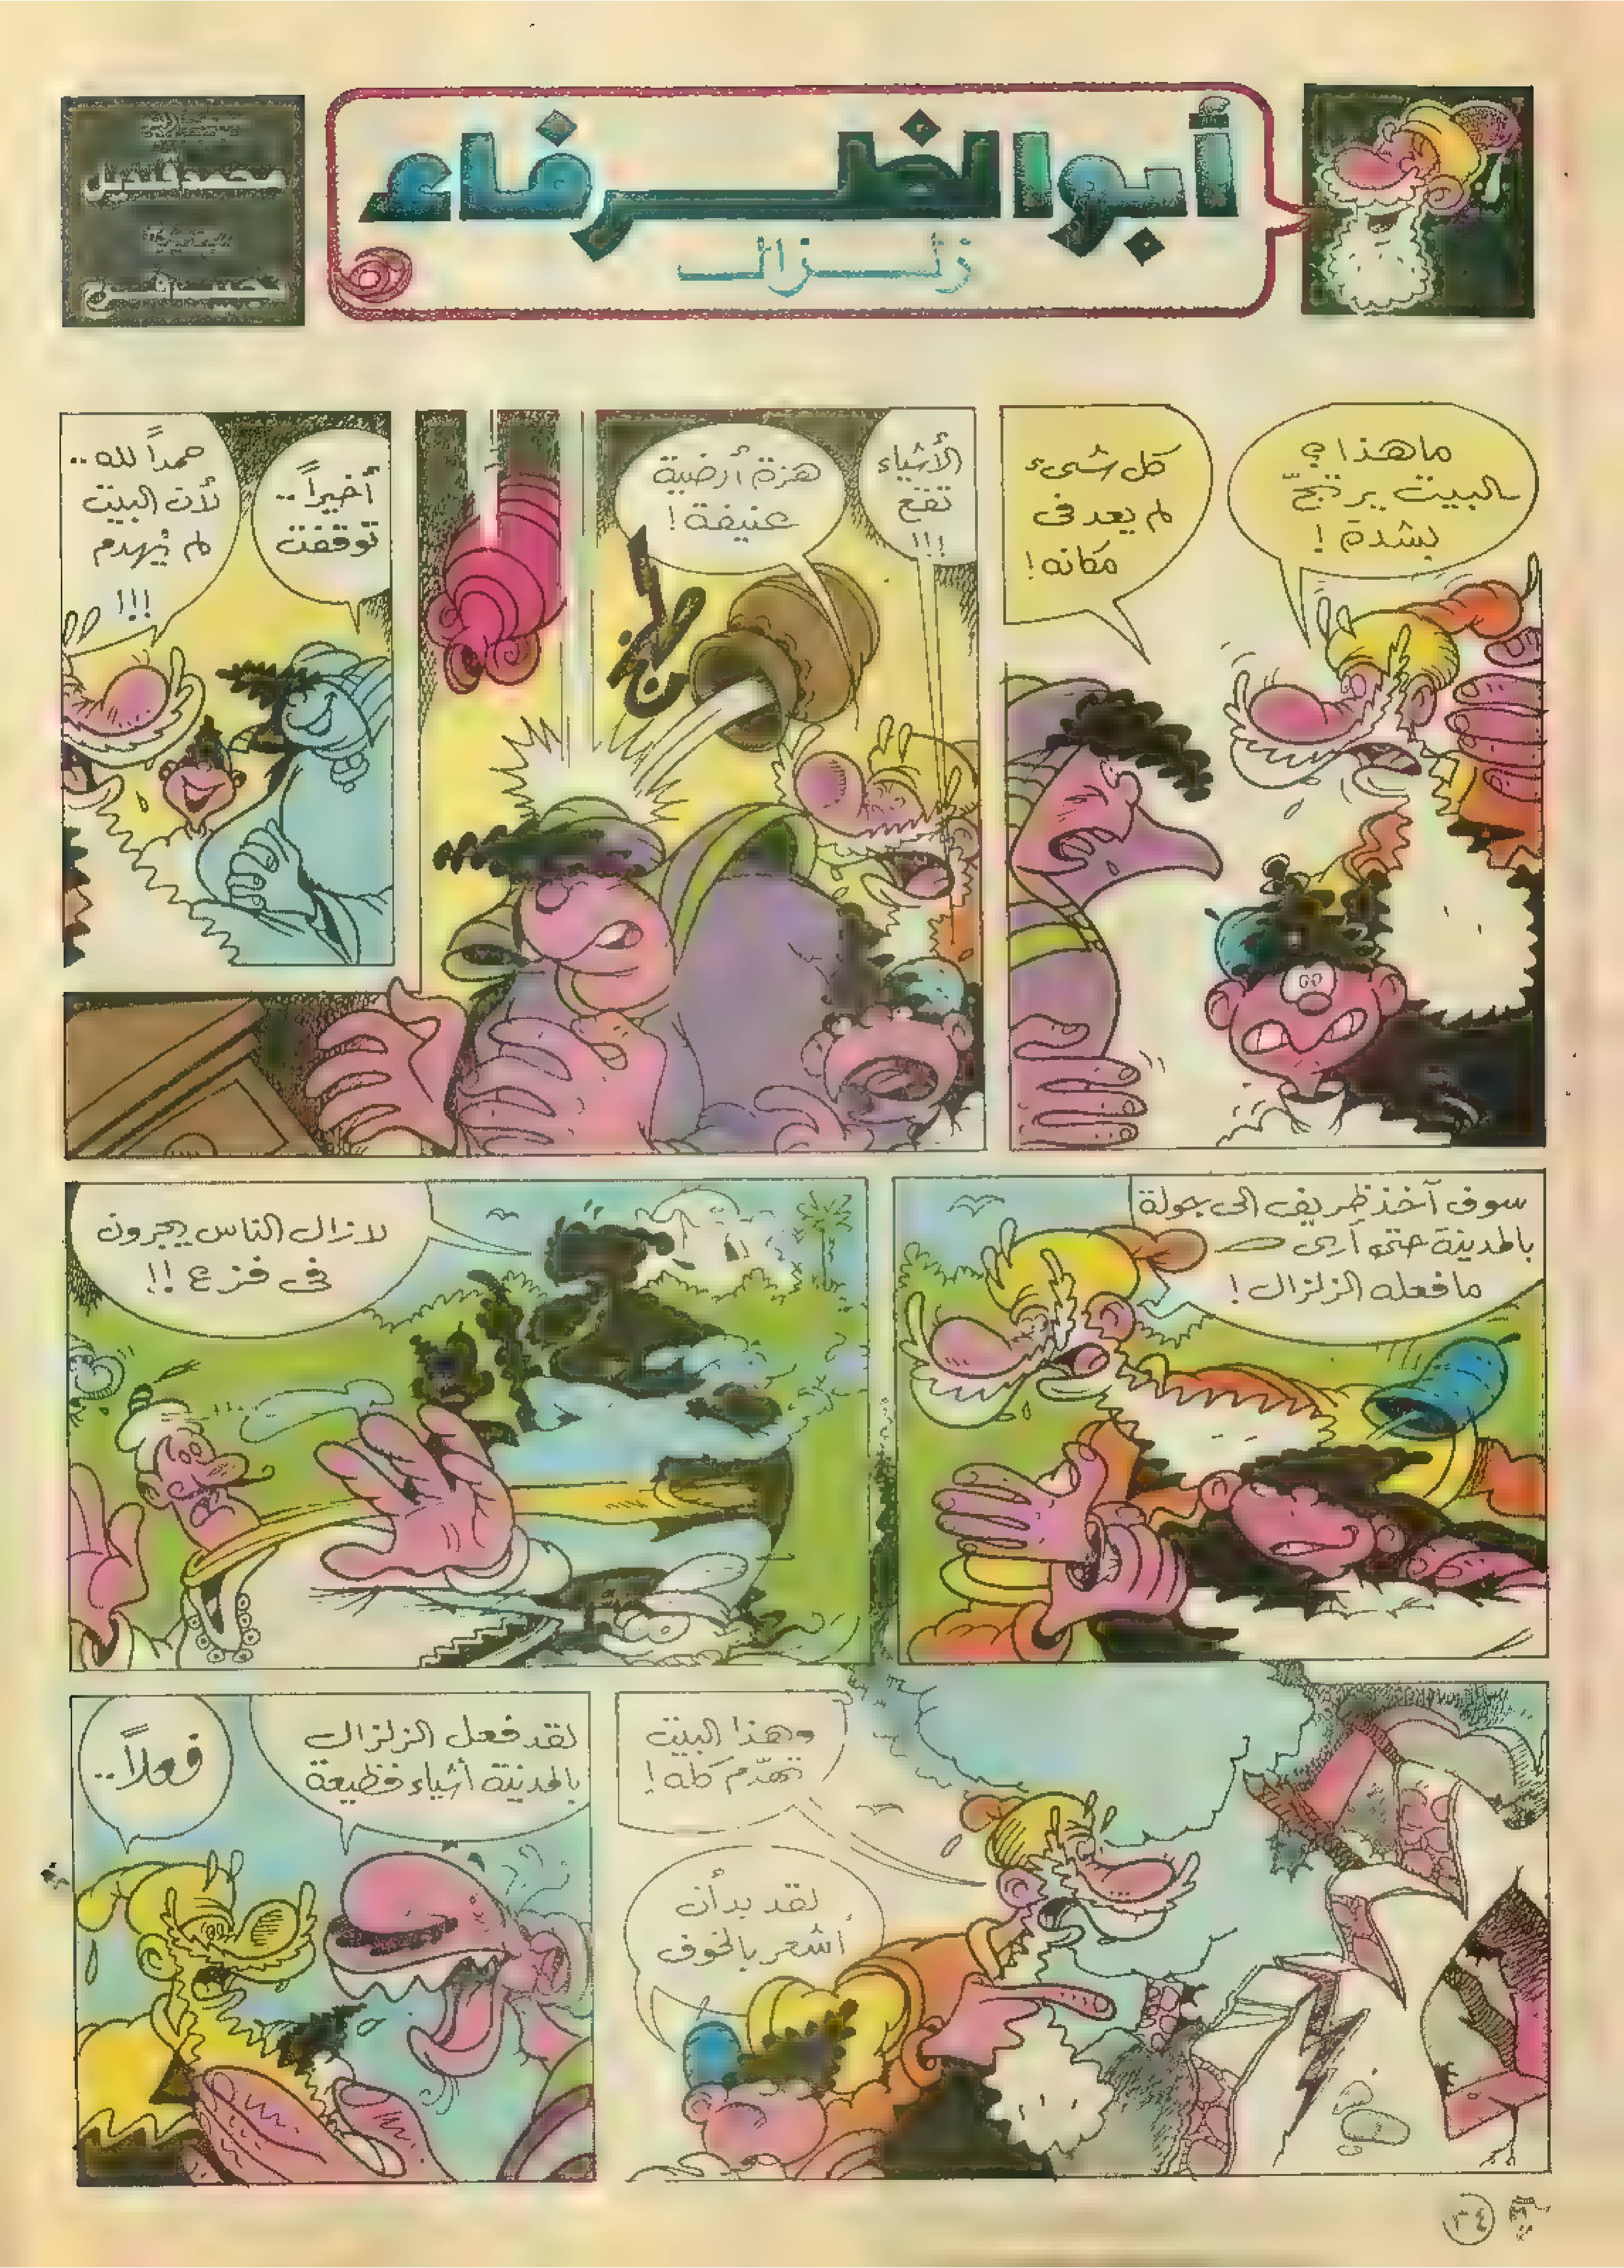 أبو الظرفاء
زلزال
محمد قنديل
ما هذا؟
البيت يرتجّ
بشدة!
كل شىء
لم يعد فى
مكانه!
الأشياء
تقع
!!!
هزة أرضية
عنيفة!
أخيراً..
توقفت
حمداً لله..
لأن البيت
لم يُهدم
!!!
سوف آخذ ظريف الى جولة
بالمدينة حتى أرى
ما فعله الزلزال!
لازال الناس يجرون
فى فزع!!
وهذا البيت
تهدّم كله!
لقد بدأت
أشعر بالخوف
لقد فعل الزلزال
بالمدينة أشياء فظيعة
فعلاً..
٣٤